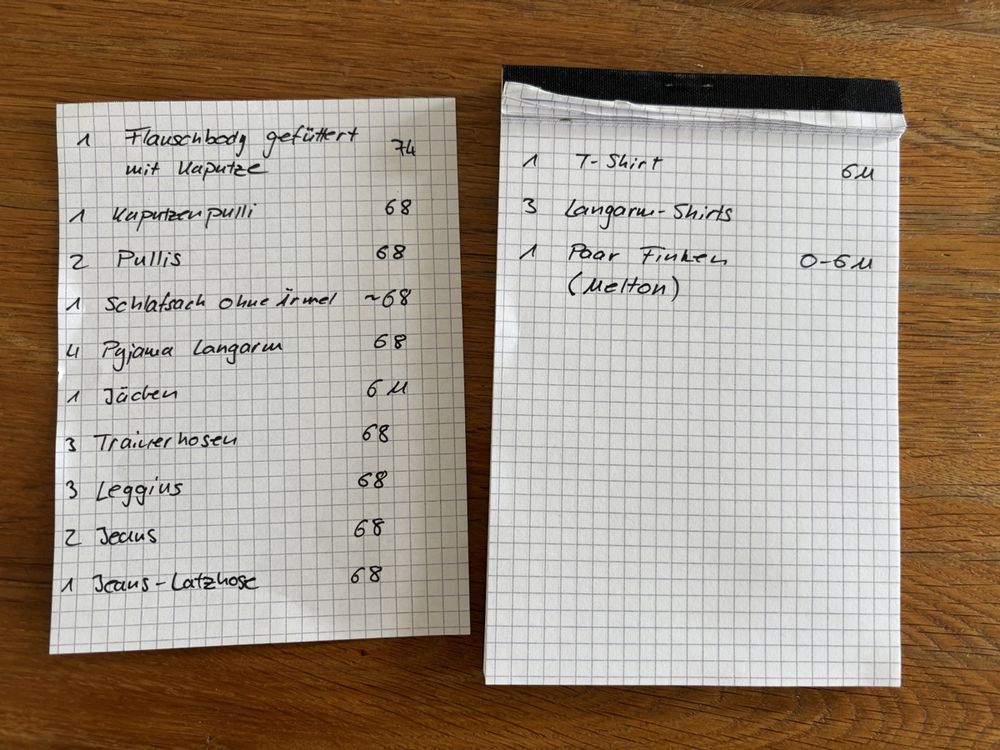 1 Flauschbody gefüttert
mit Kaputze 74
1 Kaputzenpulli 68
2 Pullis 68
1 Schlafsack ohne Ärmel ~68
4 Pyjama Langarm 68
1 Jäcken 6 M
3 Trainerhosen 68
3 Leggins 68
2 Jeans 68
1 Jeans-Latzhose 68
1 T-Shirt 6M
3 Langarm-Shirts
1 Paar Finken 0-6M
(Melton)